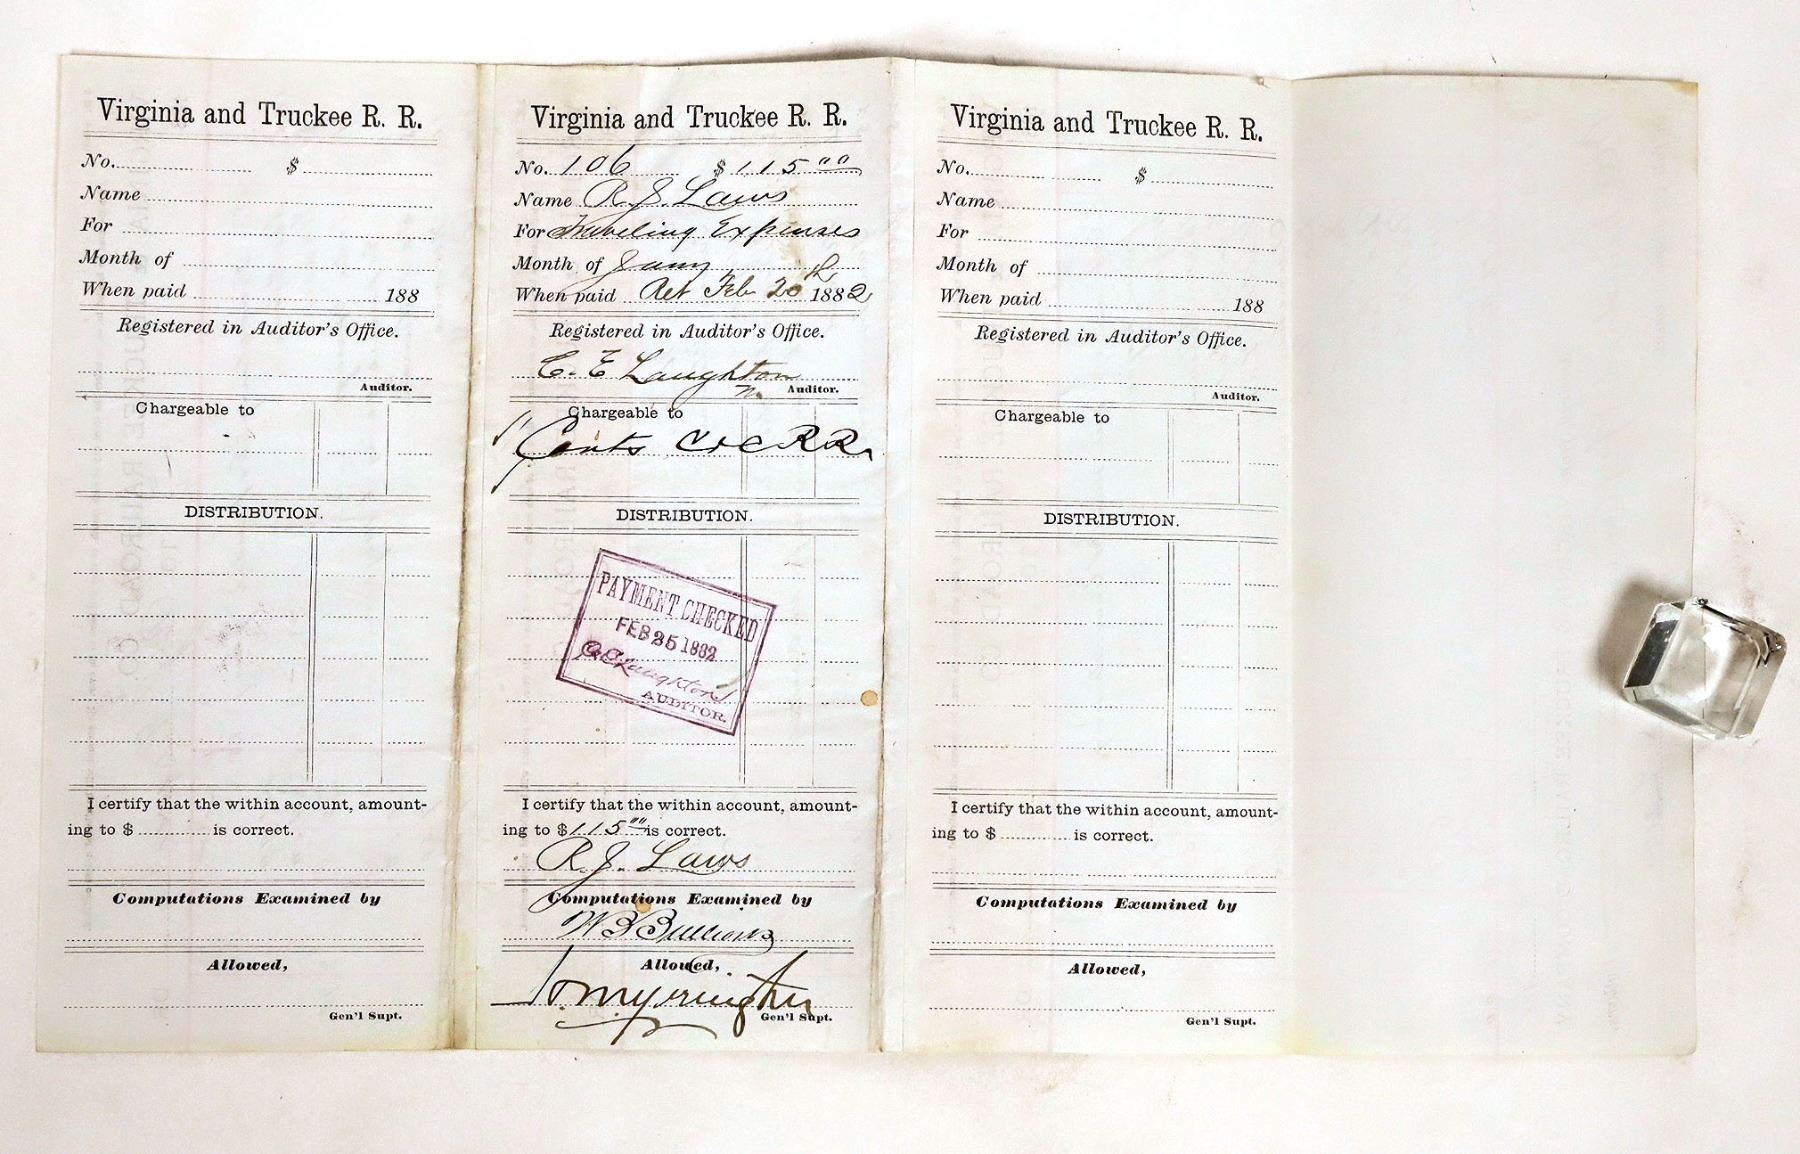 Virginia and Truckee R. R.
No. $
Name
For
Month of
When paid 188
Registered in Auditor's Office.
Auditor.
Chargeable to
DISTRIBUTION.
I certify that the within account, amount-
ing to $ is correct.
Computations Examined by
Allowed,
Gen'l Supt.
Virginia and Truckee R. R.
No. 106 $ 115 00
Name R. J. Laws
For Traveling Expenses
Month of Jany
When paid Ret Feb 20th 1882
Registered in Auditor's Office.
C. E. Laughton
Auditor.
Chargeable to
C&C RR
DISTRIBUTION.
PAYMENT CHECKED
FEB 25 1882
C E Laughton
AUDITOR.
I certify that the within account, amount-
ing to $ 115 00 is correct.
R. J. Laws
Computations Examined by
Allowed,
H M Yerington
Gen'l Supt.
Virginia and Truckee R. R.
No. $
Name
For
Month of
When paid 188
Registered in Auditor's Office.
Auditor.
Chargeable to
DISTRIBUTION.
I certify that the within account, amount-
ing to $ is correct.
Computations Examined by
Allowed,
Gen'l Supt.